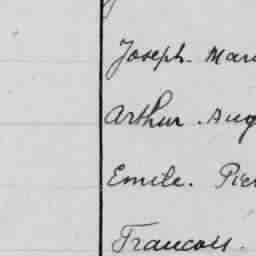 Joseph. Mar
Arthur. Aug
Emile. Pie
Francois.